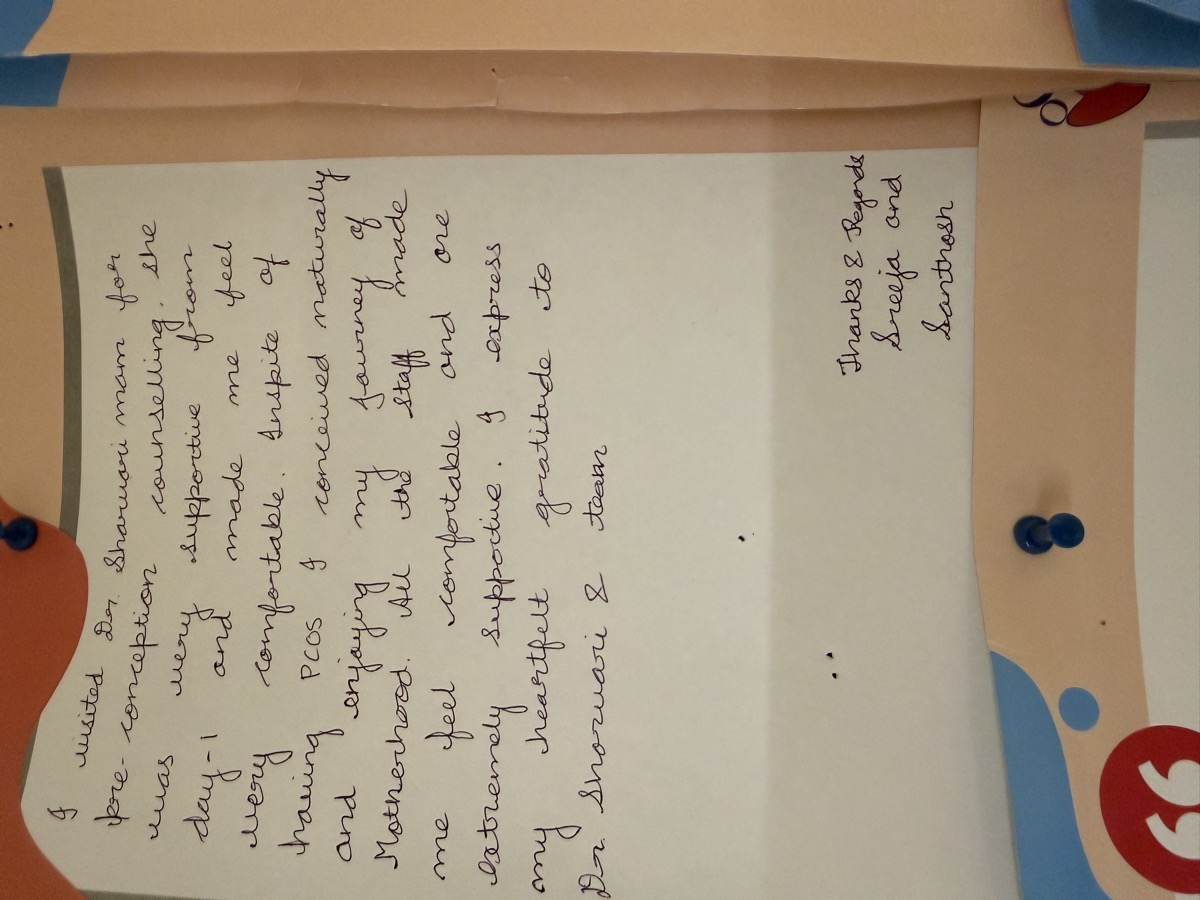 I visited Dr. Sharvari mam for
pre-conception counselling. She
was very supportive from
day-1 and made me feel
very comfortable. Inspite of
having PCOS I conceived naturally
and enjoying my journey of
Motherhood. All the staff made
me feel comfortable and are
extremely supportive. I express
my heartfelt gratitude to
Dr. Sharvari & team
Thanks & Regards
Sreeja and
Santhosh